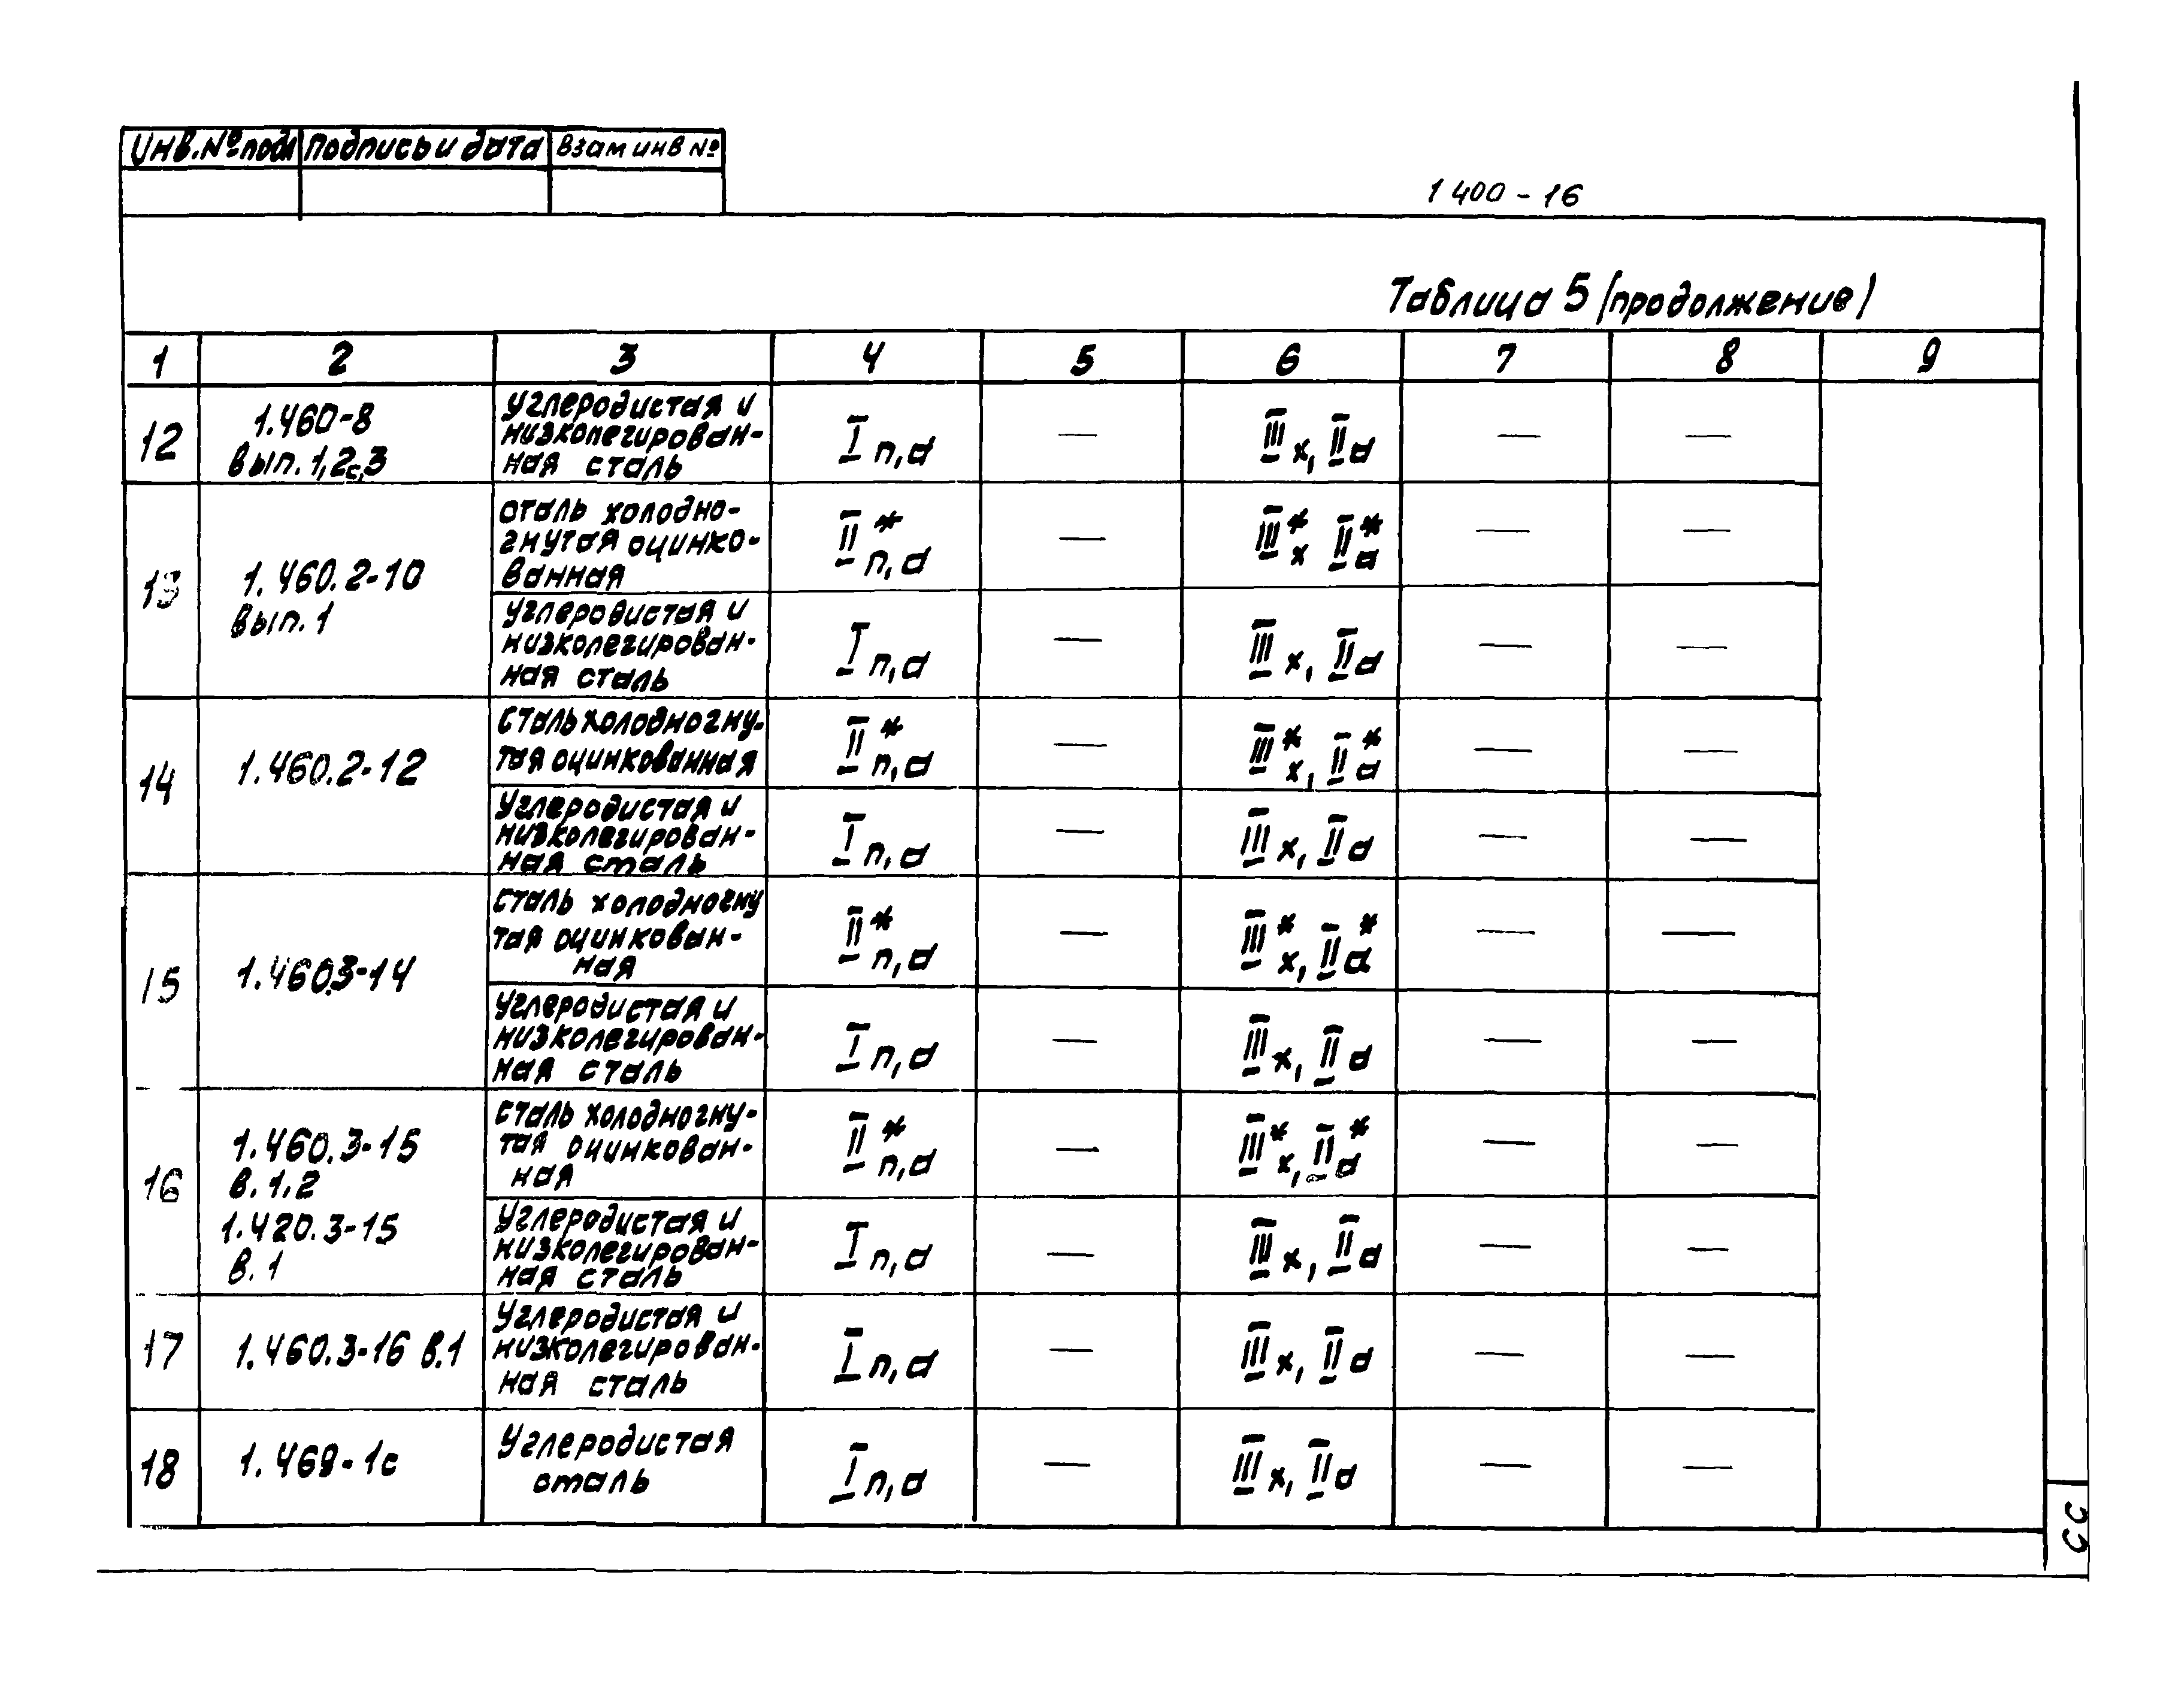 Инв.№подл Подпись и дата Взам инв №
1 400 - 16
Таблица 5 (продолжение)
1 2 3 4 5 6 7 8 9
12
1.460-8
вып. 1,2с,3
Углеродистая и
низколегирован-
ная сталь
I п,а — III х, II а — —
13
1.460.2-10
вып. 1
сталь холодно-
гнутая оцинко-
ванная
II* п,а — III* х II* а — —
Углеродистая и
низколегирован-
ная сталь
I п,а — III х, II а — —
14
1.460.2-12
сталь холодногну-
тая оцинкованная
II* п,а — III* х, II* а — —
Углеродистая и
низколегирован-
ная сталь
I п,а — III х, II а — —
15
1.460.3-14
сталь холодногну
тая оцинкован-
ная
II* п,а — III* х, II* а — —
Углеродистая и
низколегирован-
ная сталь
I п,а — III х, II а — —
16
1.460.3-15
в. 1.2
1.420.3-15
в. 1
сталь холодногну-
тая оцинкован-
ная
II* п,а — III* х, II* а — —
Углеродистая и
низколегирован-
ная сталь
I п,а — III х, II а — —
17
1.460.3-16 в.1
Углеродистая и
низколегирован-
ная сталь
I п,а — III х, II а — —
18
1.469-1с
Углеродистая
сталь
I п,а — III х, II а — —